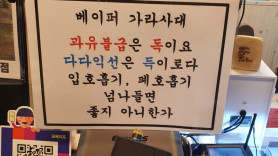 베이퍼 가라사대
과유불급은 독이요
다다익선은 득이로다
입호흡기, 폐호흡기
넘나들면
좋지 아니한가
점